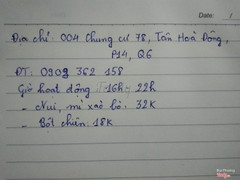 Date: /
Địa chỉ: 004 Chung cư 78, Tân Hoà Đông,
P14, Q6
ĐT: 0909 362 158
Giờ hoạt động 16h - 22h
- Nui, mì xào bò: 32K
- Bột chiên: 18K